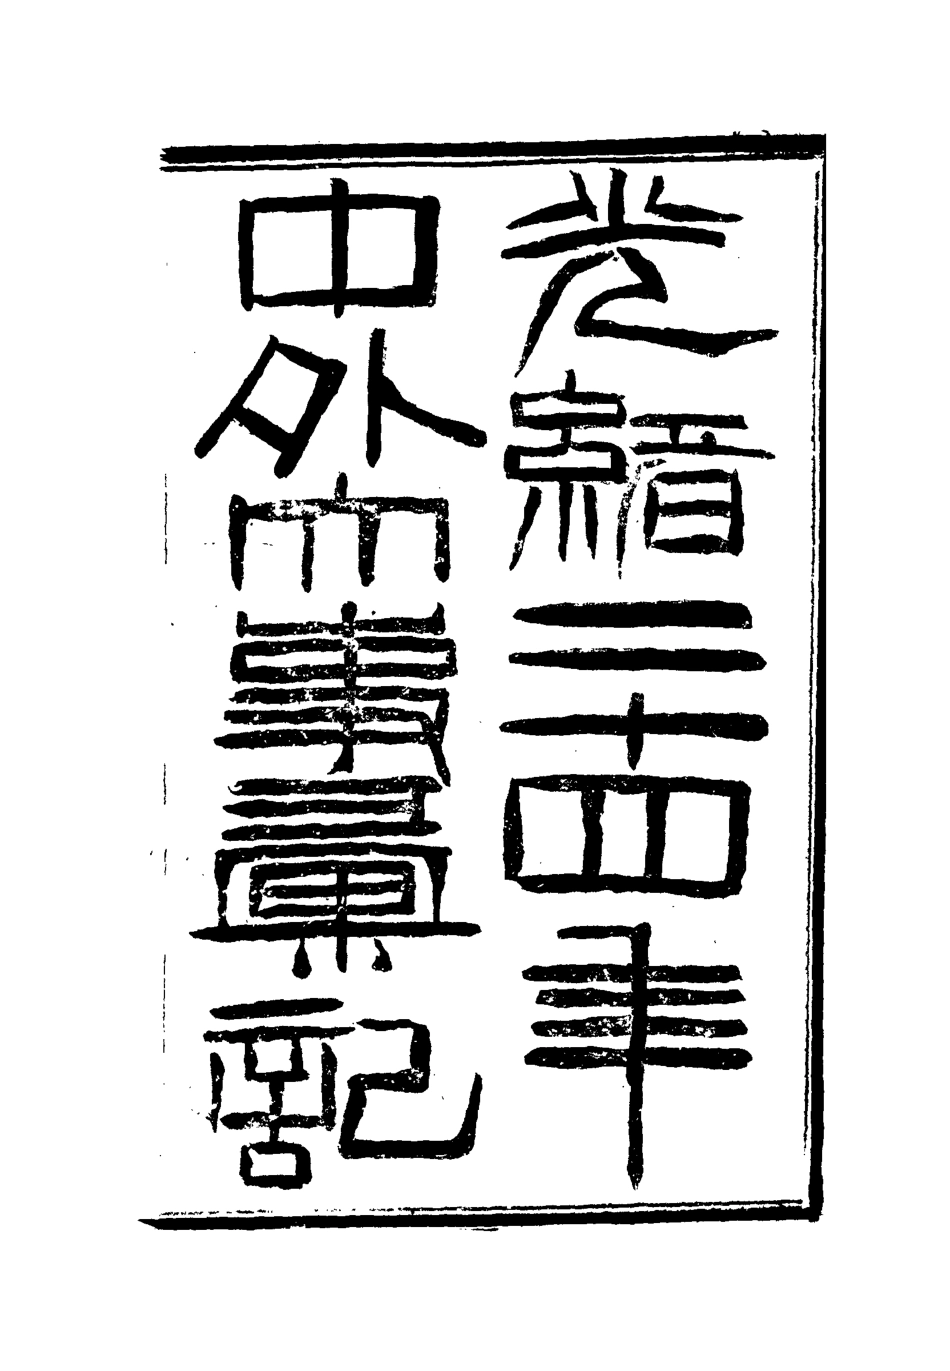 光緒二十四年
中外大事彙記